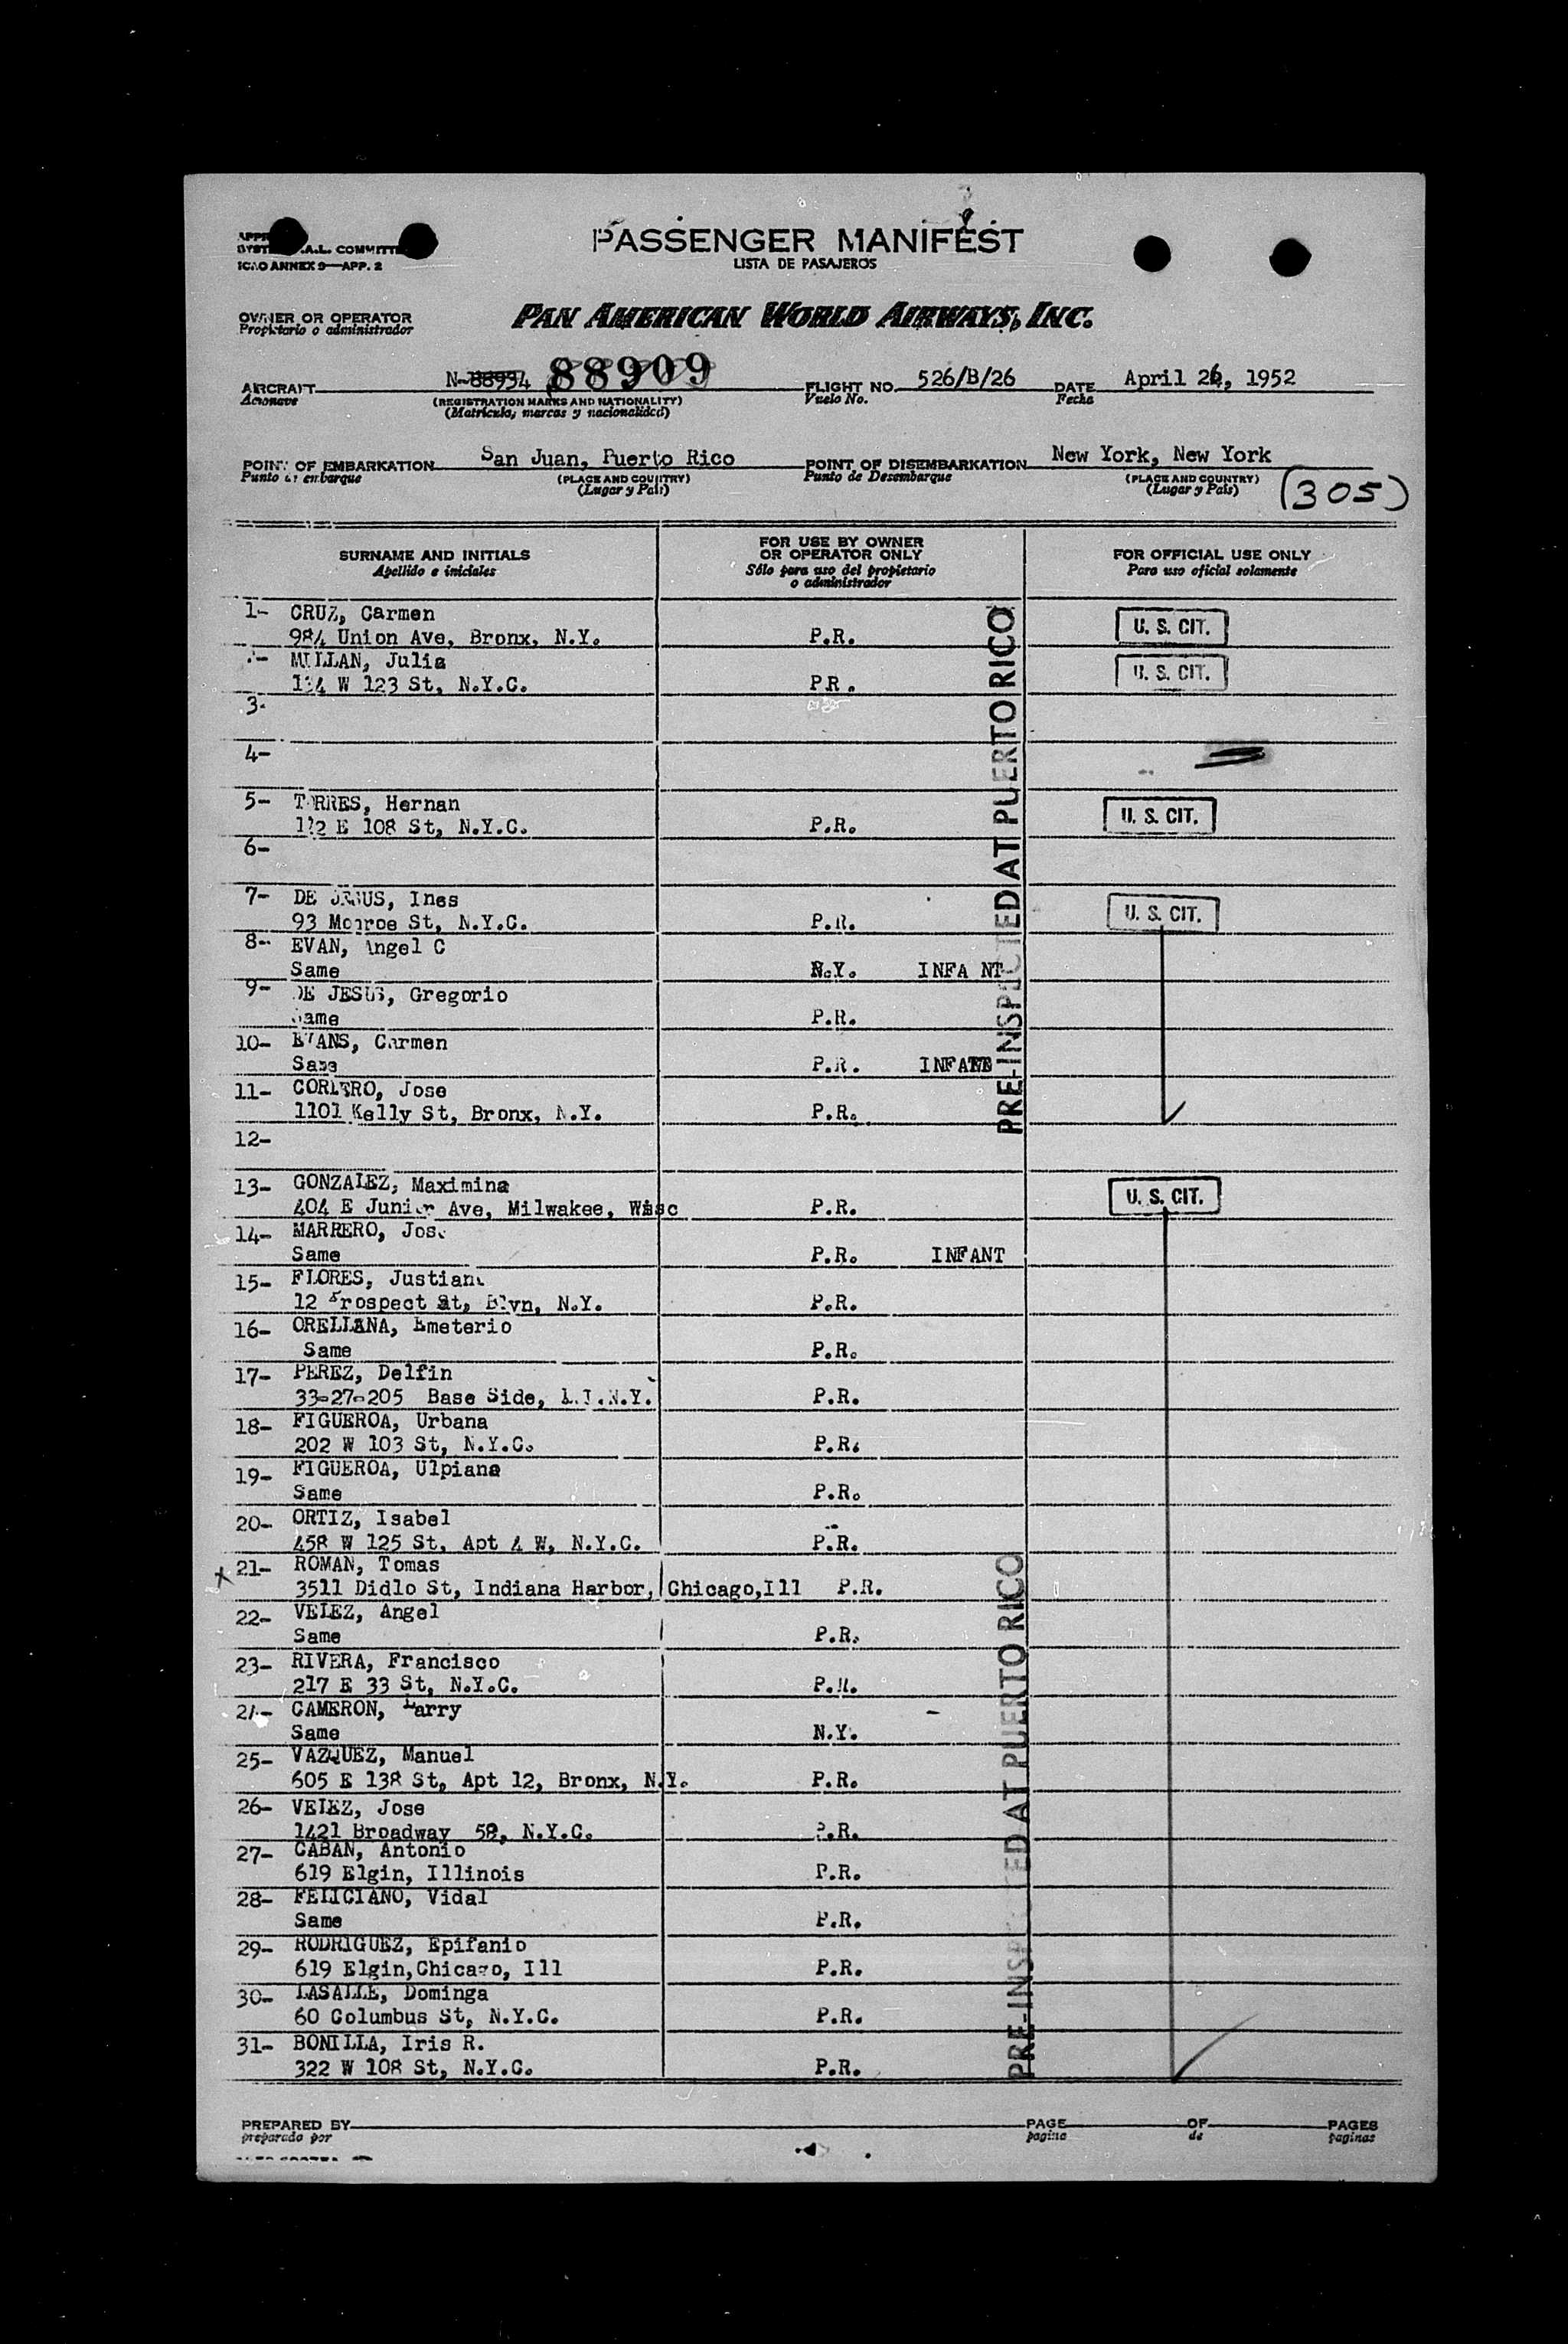 PASSENGER MANIFEST
LISTA DE PASAJEROS
ICAO ANNEX 9—APP. 2
OWNER OR OPERATOR
Propietario o administrador
PAN AMERICAN WORLD AIRWAYS, INC.
AIRCRAFT N-88934 88909 FLIGHT NO. 526/B/26 DATE April 26, 1952
Aeronave (REGISTRATION MARKS AND NATIONALITY) Vuelo No. Fecha
(Matrícula, marcas y nacionalidad)
POINT OF EMBARKATION San Juan, Puerto Rico POINT OF DISEMBARKATION New York, New York
Punto de embarque (PLACE AND COUNTRY) Punto de Desembarque (PLACE AND COUNTRY)
(Lugar y País) (Lugar y País) (305)
SURNAME AND INITIALS FOR USE BY OWNER OR OPERATOR ONLY FOR OFFICIAL USE ONLY
Apellido e iniciales Sólo para uso del propietario o administrador Para uso oficial solamente
1- CRUZ, Carmen
984 Union Ave, Bronx, N.Y. P.R. U. S. CIT.
MILLAN, Julia
W 123 St, N.Y.C. P.R. U. S. CIT.
3-
4-
5- TORRES, Hernan
112 E 108 St, N.Y.C. P.R. U. S. CIT.
6-
7- DE JESUS, Ines
93 Monroe St, N.Y.C. P.R. U. S. CIT.
8- EVAN, Angel C
Same N.Y. INFA NT
9- DE JESUS, Gregorio
Same P.R.
10- EVANS, Carmen
Same P.R. INFANT
11- CORDERO, Jose
1101 Kelly St, Bronx, N.Y. P.R.
PRE-INSPECTED AT PUERTO RICO
12-
13- GONZALEZ, Maximina
404 E Junier Ave, Milwakee, Wisc P.R. U. S. CIT.
14- MARRERO, Jose
Same P.R. INFANT
15- FLORES, Justiana
12 Prospect St, Blvn, N.Y. P.R.
16- ORELLANA, Emeterio
Same P.R.
17- PEREZ, Delfin
33-27-205 Base Side, L.I.N.Y. P.R.
18- FIGUEROA, Urbana
202 W 103 St, N.Y.C. P.R.
19- FIGUEROA, Ulpiana
Same P.R.
20- ORTIZ, Isabel
458 W 125 St, Apt 4 W, N.Y.C. P.R.
x 21- ROMAN, Tomas
3511 Didlo St, Indiana Harbor, Chicago,Ill P.R.
22- VELEZ, Angel
Same P.R.
23- RIVERA, Francisco
217 E 33 St, N.Y.C. P.R.
24- CAMERON, Larry
Same N.Y.
25- VAZQUEZ, Manuel
605 E 138 St, Apt 12, Bronx, N.Y. P.R.
26- VELEZ, Jose
1421 Broadway 58, N.Y.C. P.R.
27- CABAN, Antonio
619 Elgin, Illinois P.R.
28- FELICIANO, Vidal
Same P.R.
29- RODRIGUEZ, Epifanio
619 Elgin,Chicago, Ill P.R.
30- LASALLE, Dominga
60 Columbus St, N.Y.C. P.R.
31- BONILLA, Iris R.
322 W 108 St, N.Y.C. P.R.
PRE-INSPECTED AT PUERTO RICO
PREPARED BY PAGE OF PAGES
preparado por pagina de paginas